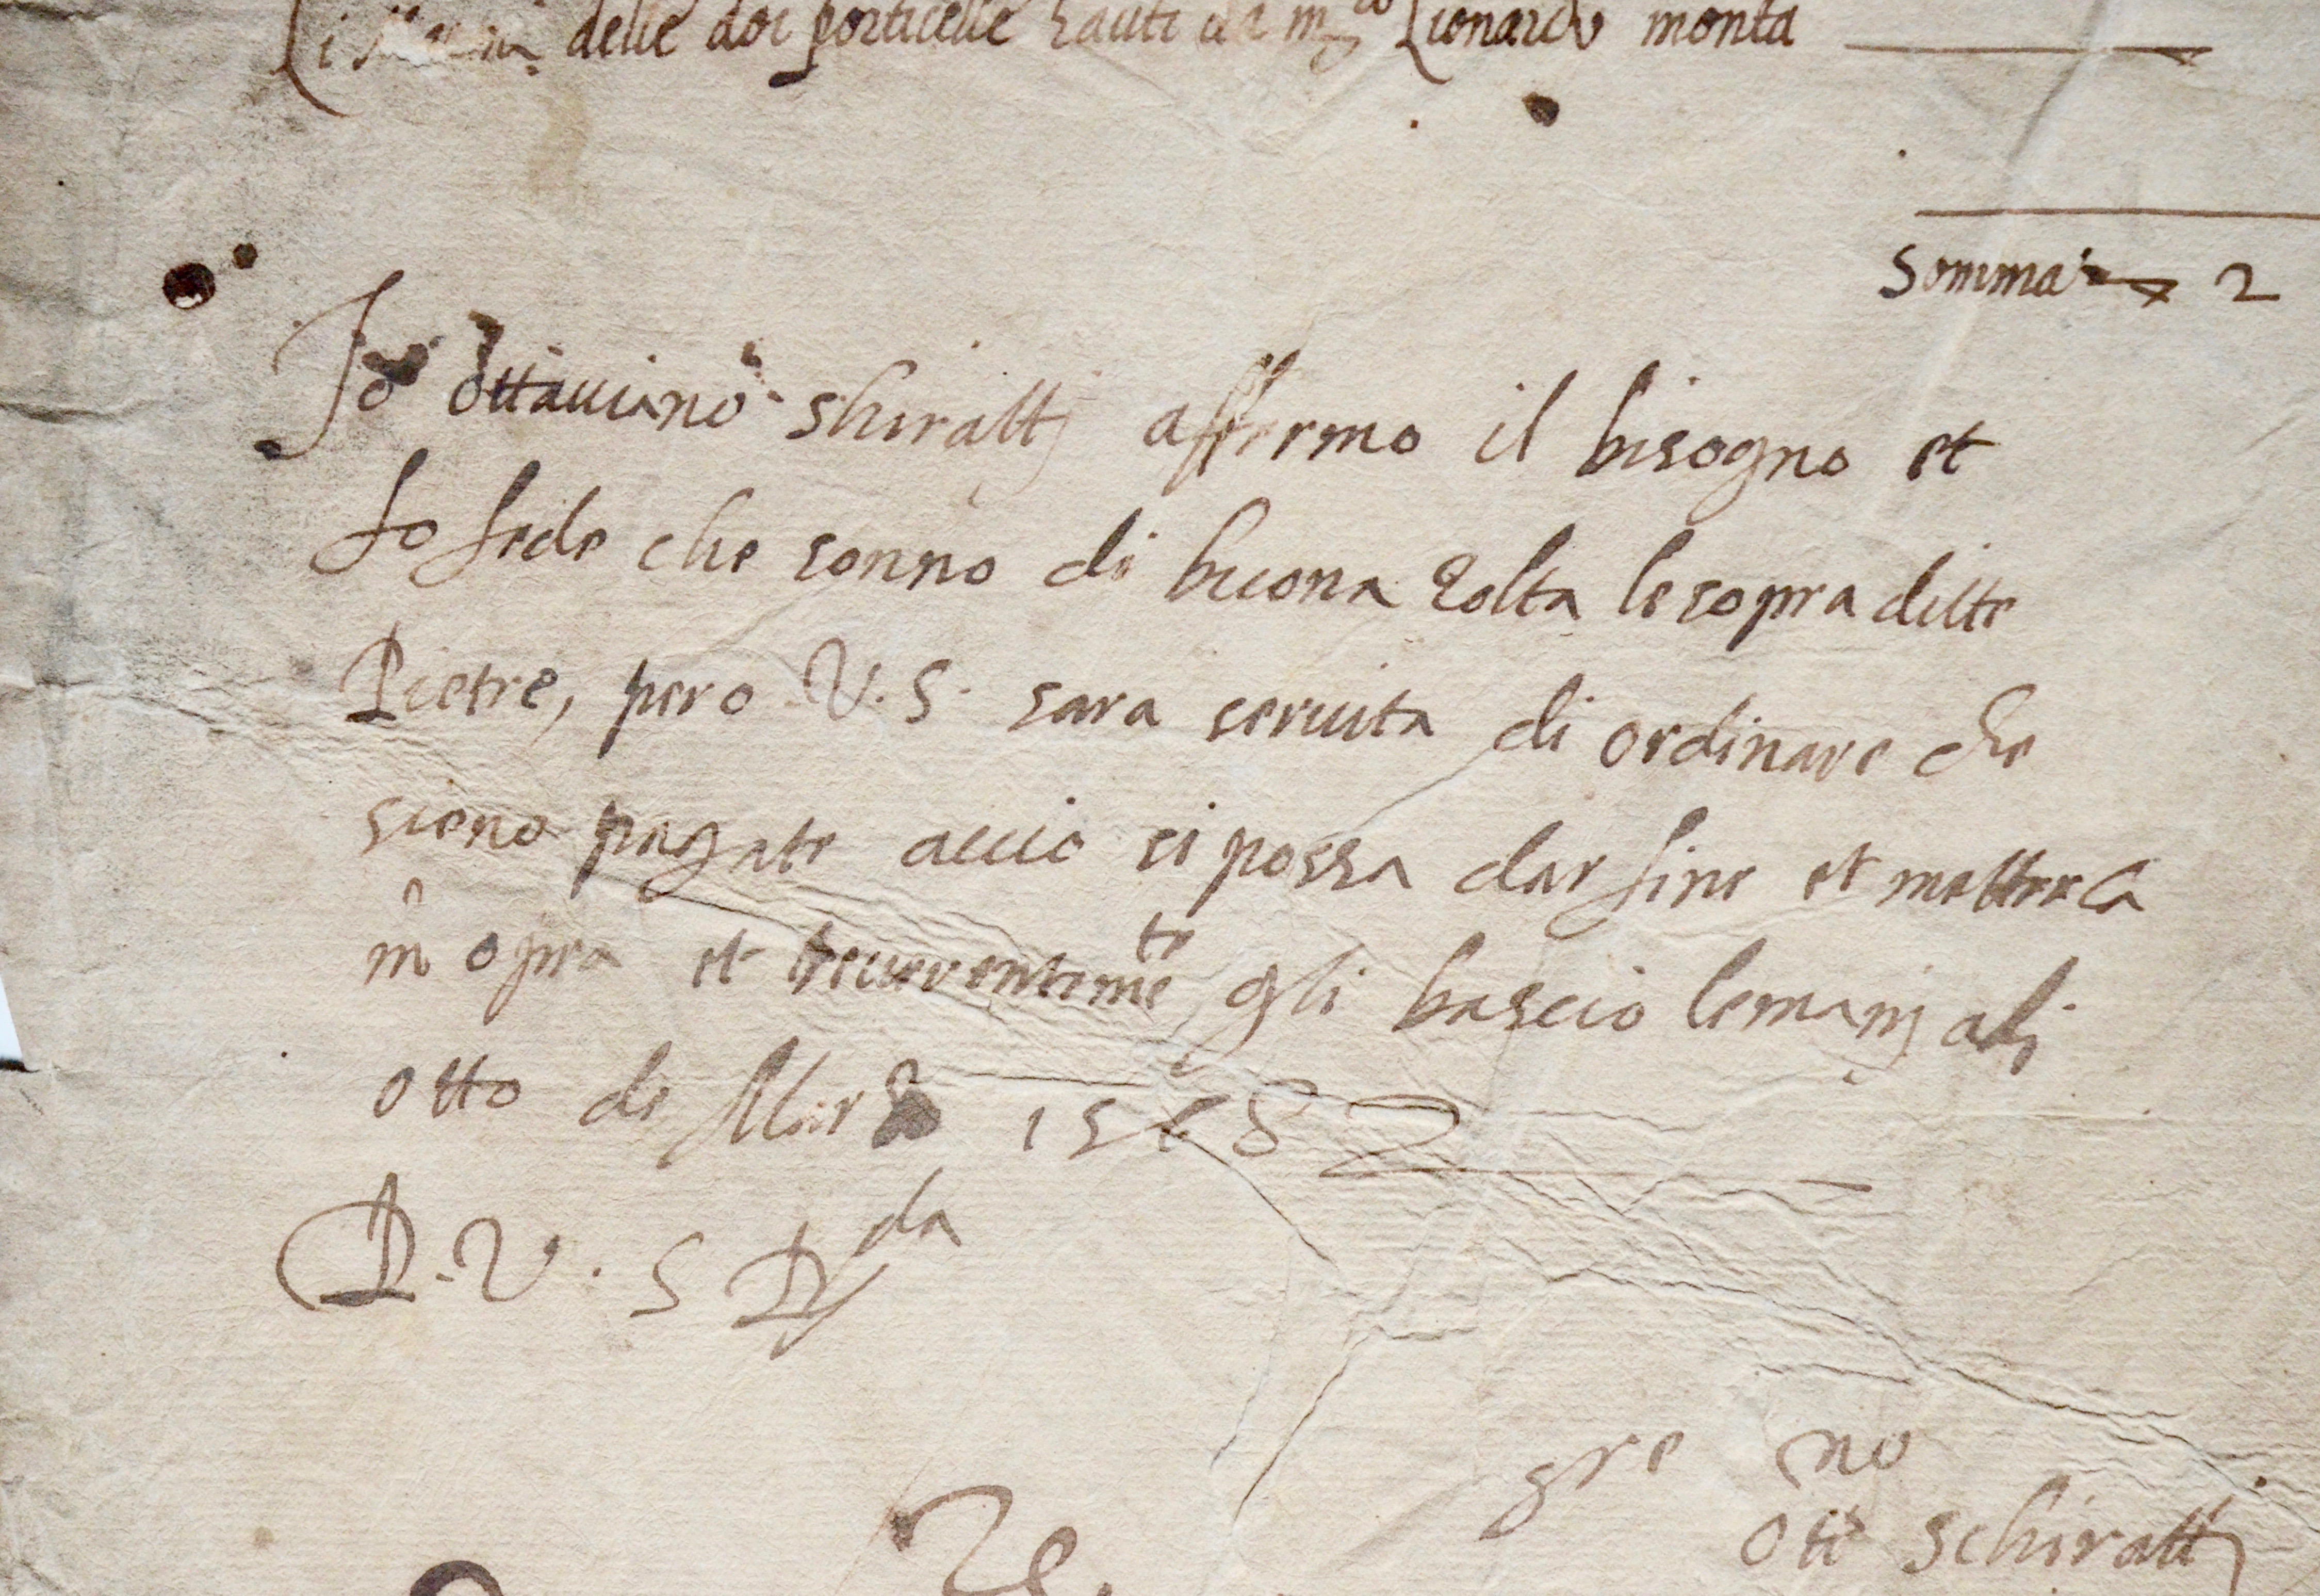 Li delle doi porticelle hauti da m.co Lionardo monta
Somma 2
Io ottauiano shirattj affermo il bisogno et
fo fede che sonno di buona zolta le sopra ditte
Pietre, pero V. S. sara seruita di ordinare che
sieno pagate accio si possa dar fine et metterla
in opra et gli bascio le manj alj
otto de Marzo 1568
D. V. S R da
sre no
ott schirattj